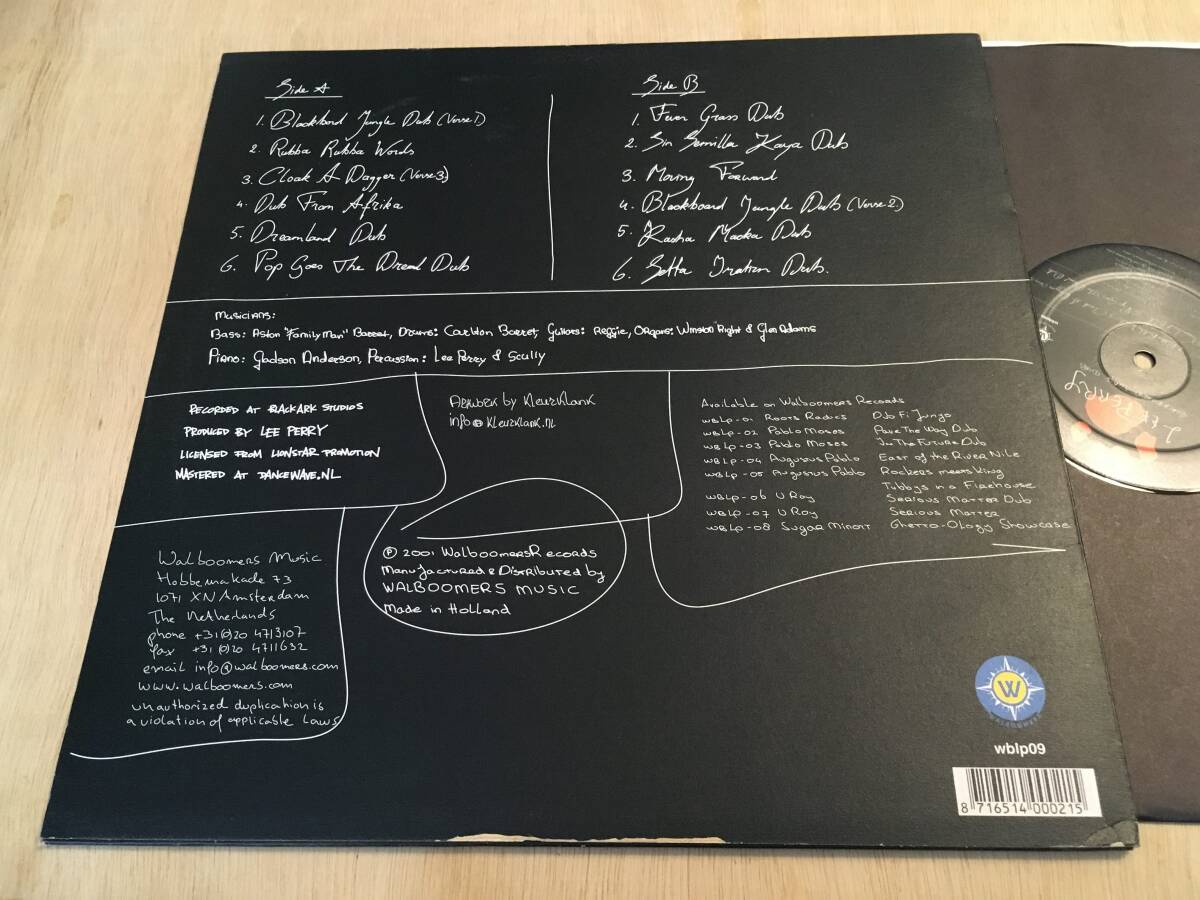 Side A
1. Blackbord Jungle Dub (Verse 1)
2. Rubba Rubba Words
3. Cloak A Dagger (Verse 3)
4. Dub From Afrika
5. Dreamland Dub
6. Pop Goes The Dread Dub
Side B
1. Fever Grass Dub
2. Sin Semilla Kaya Dub
3. Moving Forward
4. Blackboard Jungle Dub (Verse 2)
5. Kasha Macka Dub
6. Setta Iration Dub.
Musicians:
Bass: Aston "Family Man" Barret, Drums: Carlton Barret, Guitars: Reggie, Organs: Winston Right & Glen Adams
Piano: Gladson Anderson, Percussion: Lee Perry & Scully
RECORDED AT BLACK ARK STUDIOS
PRODUCED BY LEE PERRY
LICENSED FROM LIONSTAR PROMOTION
MASTERED AT DANCEWAVE.NL
Artwork by KleurKlank
info@KleurKlank.nl
Available on Walboomers Records
WBLP-01 Roots Radics Dub Fi Jungo
WBLP-02 Pablo Moses Pave The Way Dub
WBLP-03 Pablo Moses In The Future Dub
WBLP-04 Augustus Pablo East of the River Nile
WBLP-05 Augustus Pablo Rockers meets King
Tubbys in a Firehouse
WBLP-06 U Roy Serious Matter Dub
WBLP-07 U Roy Serious Matter
WBLP-08 Sugar Minott Ghetto-Ology Showcase
Walboomers Music
Hobbemakade 73
1071 XN Amsterdam
The Netherlands
phone +31(0)20 4713107
fax +31(0)20 4711632
email info@walboomers.com
www.walboomers.com
unauthorized duplication is
a violation of applicable laws
℗ 2001 Walboomers Records
Manufactured & Distributed by
WALBOOMERS MUSIC
Made in Holland
W
WALBOOMERS
wblp09
8 716514 000215
LEE PERRY